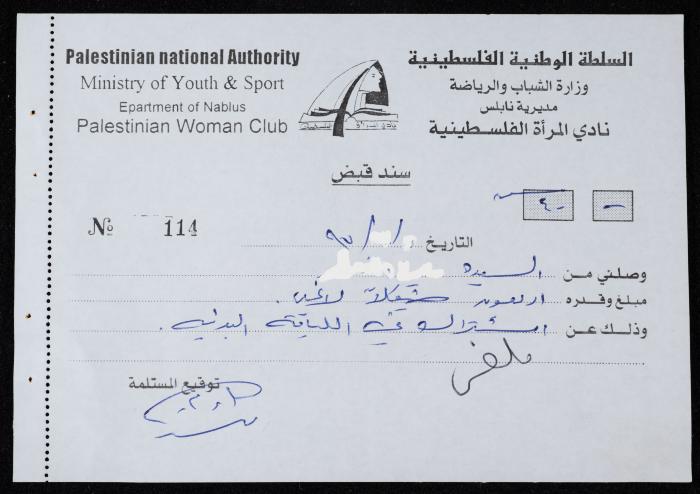 Palestinian national Authority
Ministry of Youth & Sport
Epartment of Nablus
Palestinian Woman Club
السلطة الوطنية الفلسطينية
وزارة الشباب والرياضة
مديرية نابلس
نادي المرأة الفلسطينية
سند قبض
٤٠
№ 114
التاريخ
وصلني من السيدة
مبلغ وقدره اربعون شيكلا لاغير.
وذلك عن اشتراك في اللياقة البدنية.
توقيع المستلمة